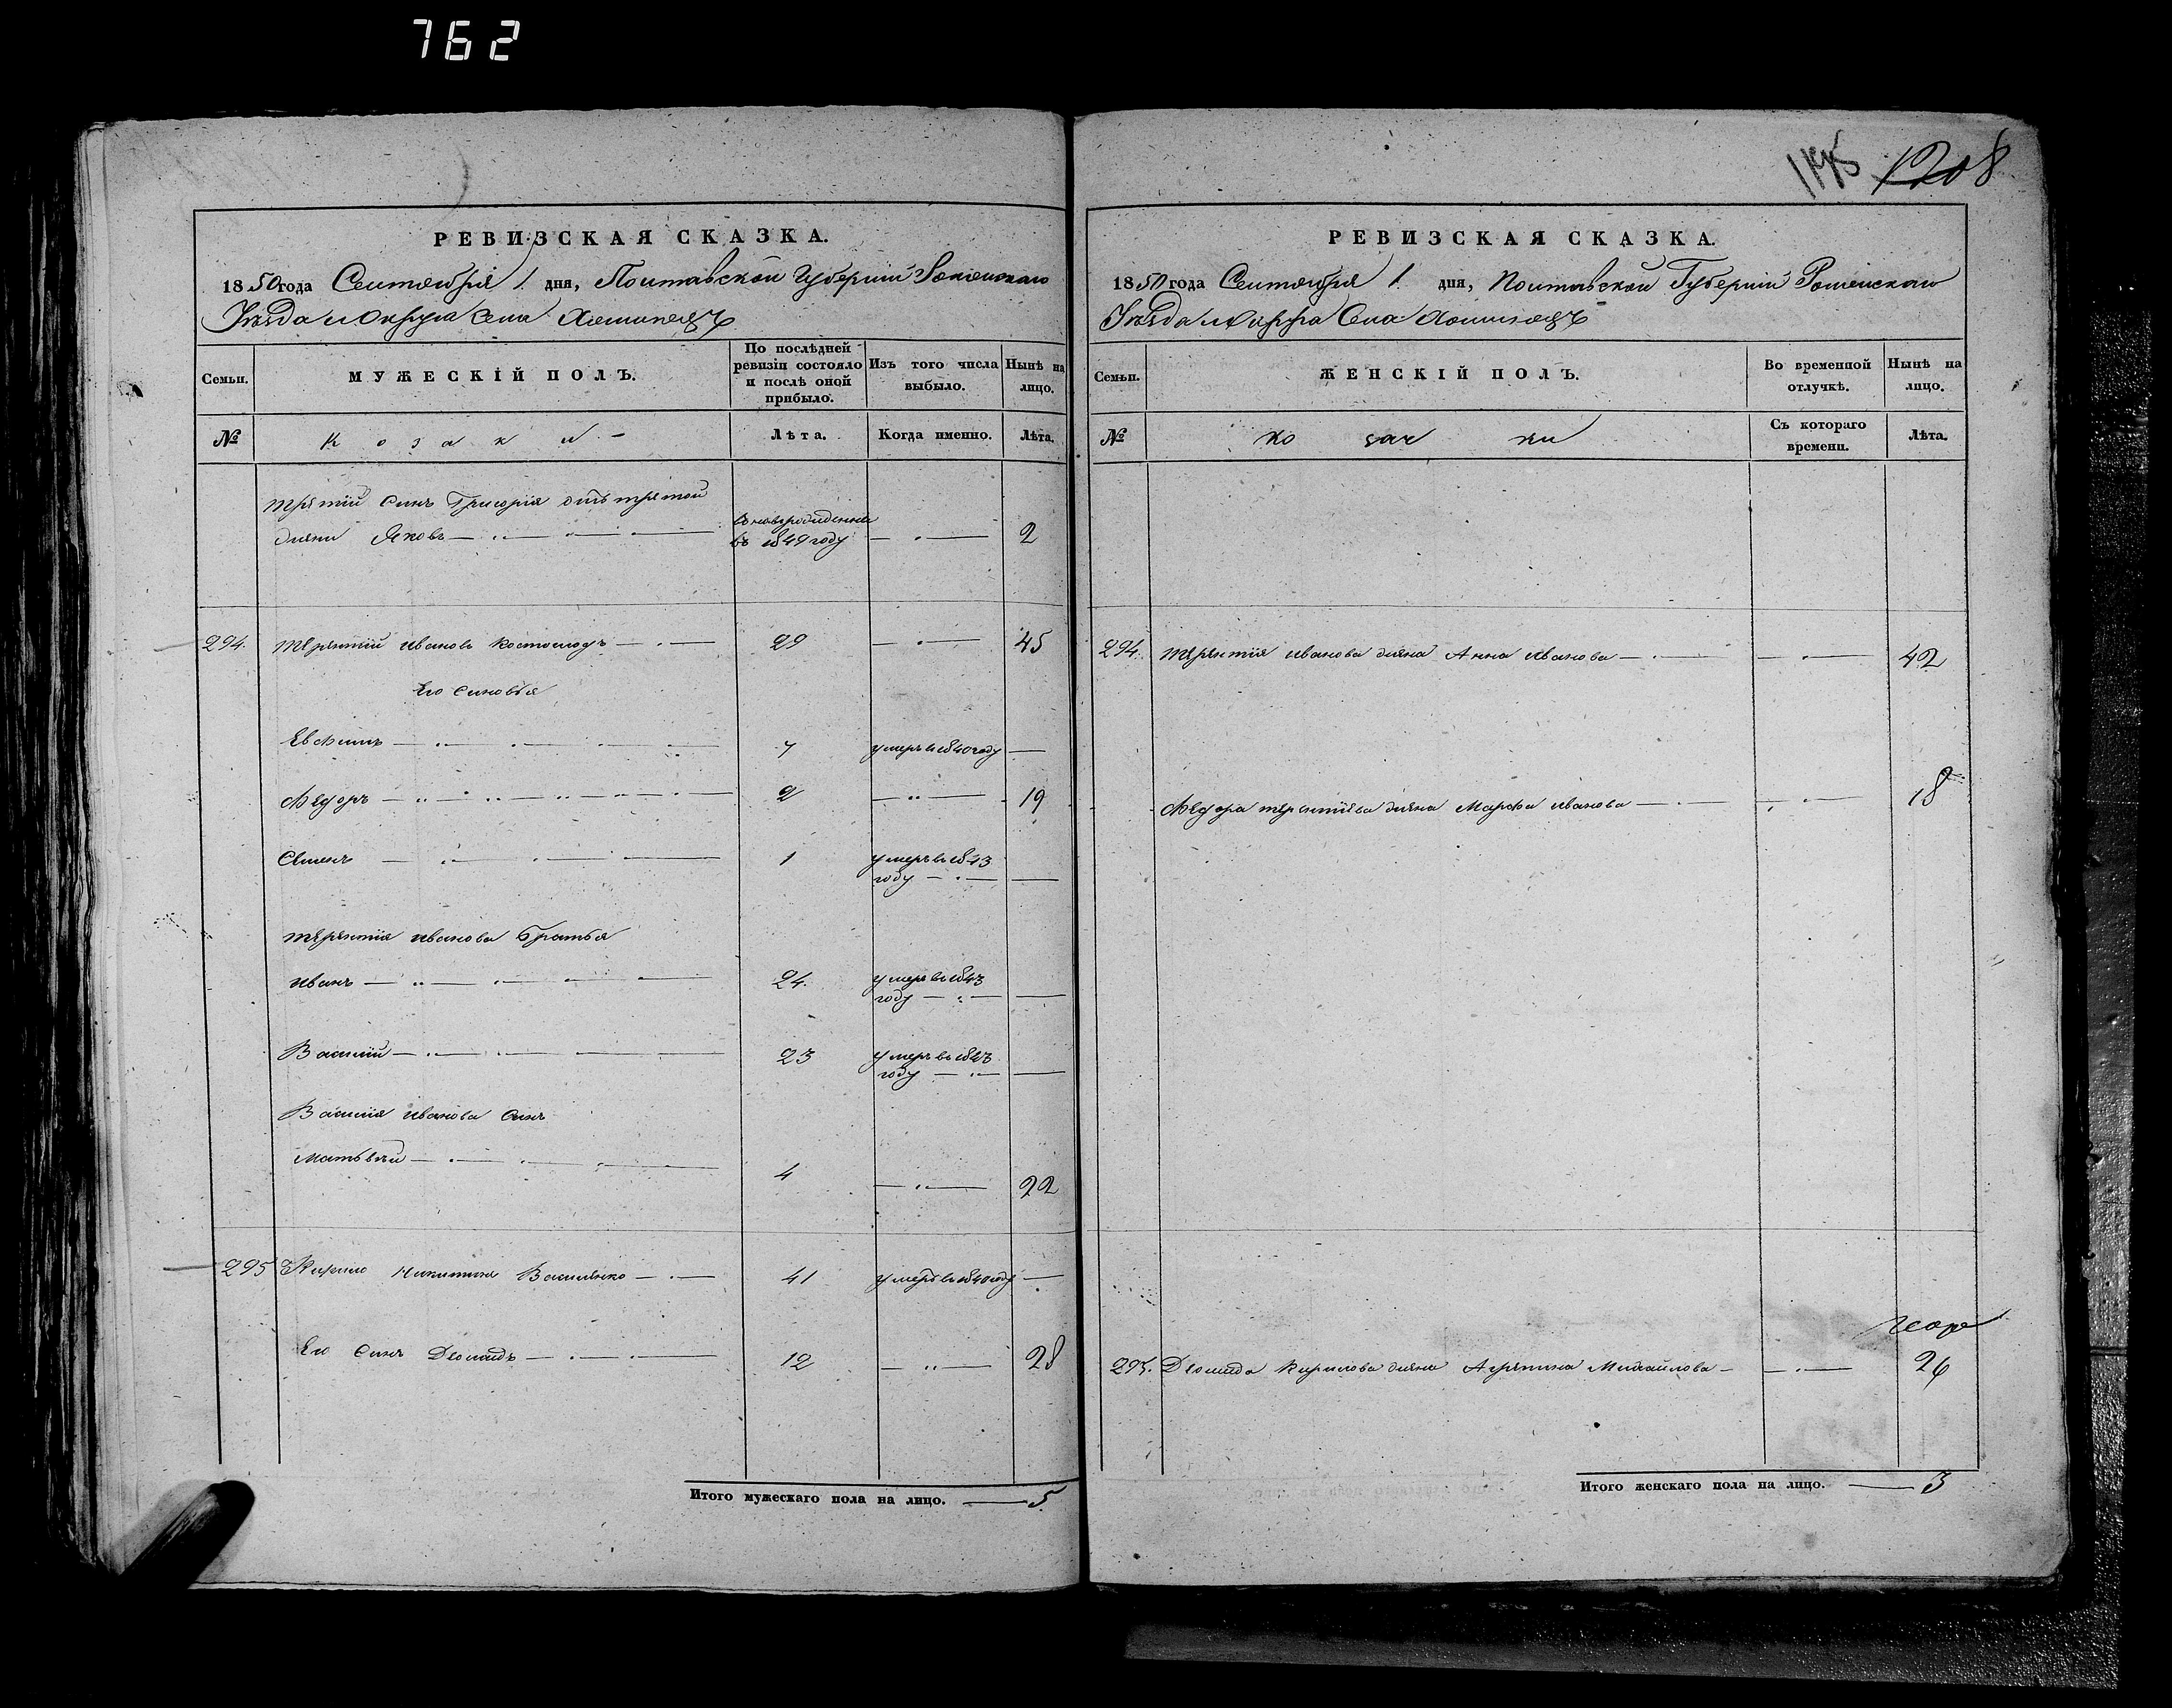 762
1208
РЕВИЗСКАЯ СКАЗКА.
1850 года Сентября 1 дня, Полтавской Губернии Роменского
Уезда и Округа Села
Семьи.
МУЖЕСКІЙ ПОЛЪ.
По послѣдней ревизіи состояло и послѣ оной прибыло.
Изъ того числа выбыло.
Нынѣ на лицо.
№
Козаки
Лѣта.
Когда именно.
Лѣта.
третій Синъ Григорія отъ третой
жени Яковъ
новорожденный
въ 1849 году
2
294. Терентій Ивановъ 29 45
Его Синовья
Евфимъ 7 умеръ в 1840 году
Федоръ 2 19
Семенъ 1 умеръ в 1843
году
Терентія Иванова Братья
Иванъ 24. умеръ в 1843
году
Василій 23 умеръ в 1843
году
Василія Иванова Синъ
Матвѣй 4 22
295 Кирило Никитинъ Василенко 41 умеръ в 1840 году
Его Синъ Деомидъ 12 28
Итого мужескаго пола на лицо. 5.
РЕВИЗСКАЯ СКАЗКА.
1850 года Сентября 1. дня, Полтавской Губерніи Роменского
Уезда и Округа Села
Семьи.
ЖЕНСКІЙ ПОЛЪ.
Во временной отлучкѣ.
Нынѣ на лицо.
№
козачки
Съ котораго времени.
Лѣта.
294. Терентія Иванова жена Анна Иванова 42
Федора Терентіева жена Марфа Иванова 18
295. Деомида Кирилова жена Агрепина Михайлова 26
Итого женскаго пола на лицо. 3